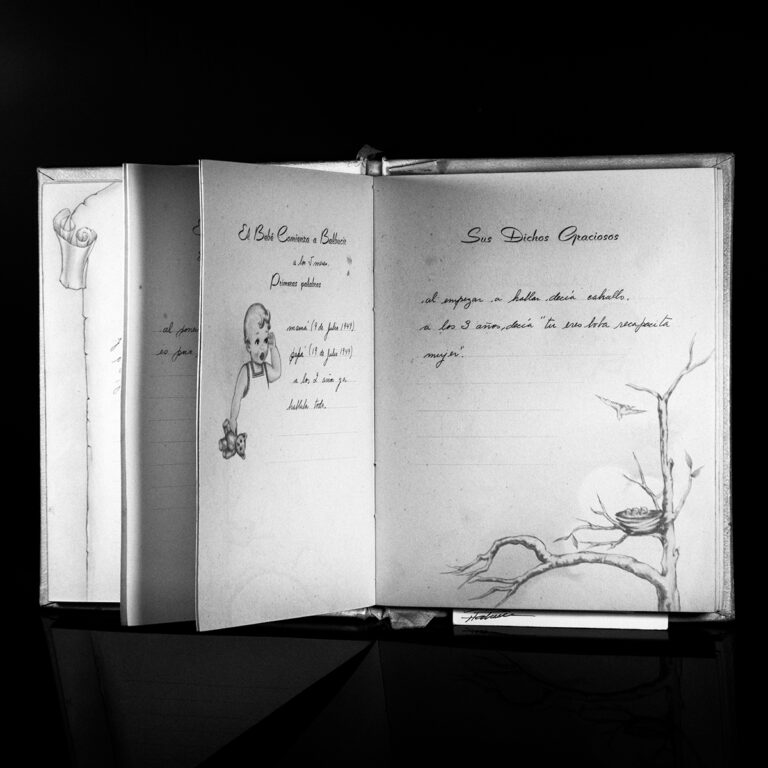 al poner
es para
El Bebé Comienza a Balbucir
a los 5 meses.
Primeras palabras
mamá (9 de Julio 1949)
papá (19 de Julio 1949)
a los 2 años ya
hablaba todo.
Sus Dichos Graciosos
al empezar a hablar decía caballo.
a los 3 años, decía "tu eres boba recapacita
mujer".